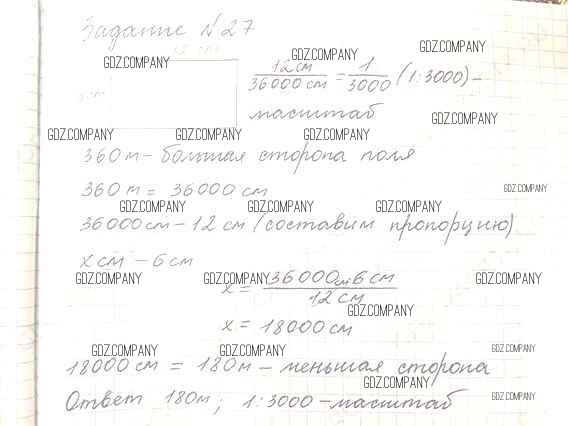 Задание №27
12 см
GDZ.COMPANY GDZ.COMPANY GDZ.COMPANY
12 см / 36000 см = 1 / 3000 (1:3000) -
масштаб
GDZ.COMPANY
GDZ.COMPANY GDZ.COMPANY GDZ.COMPANY
360 м - большая сторона поля
360 м = 36000 см
GDZ.COMPANY
GDZ.COMPANY GDZ.COMPANY GDZ.COMPANY
36000 см - 12 см (составим пропорцию)
x см - 6 см
GDZ.COMPANY GDZ.COMPANY GDZ.COMPANY
x = 36000 см 6 см / 12 см
GDZ.COMPANY
x = 18000 см
GDZ.COMPANY GDZ.COMPANY GDZ.COMPANY
18000 см = 180 м - меньшая сторона
GDZ.COMPANY GDZ.COMPANY
Ответ 180 м; 1:3000 - масштаб